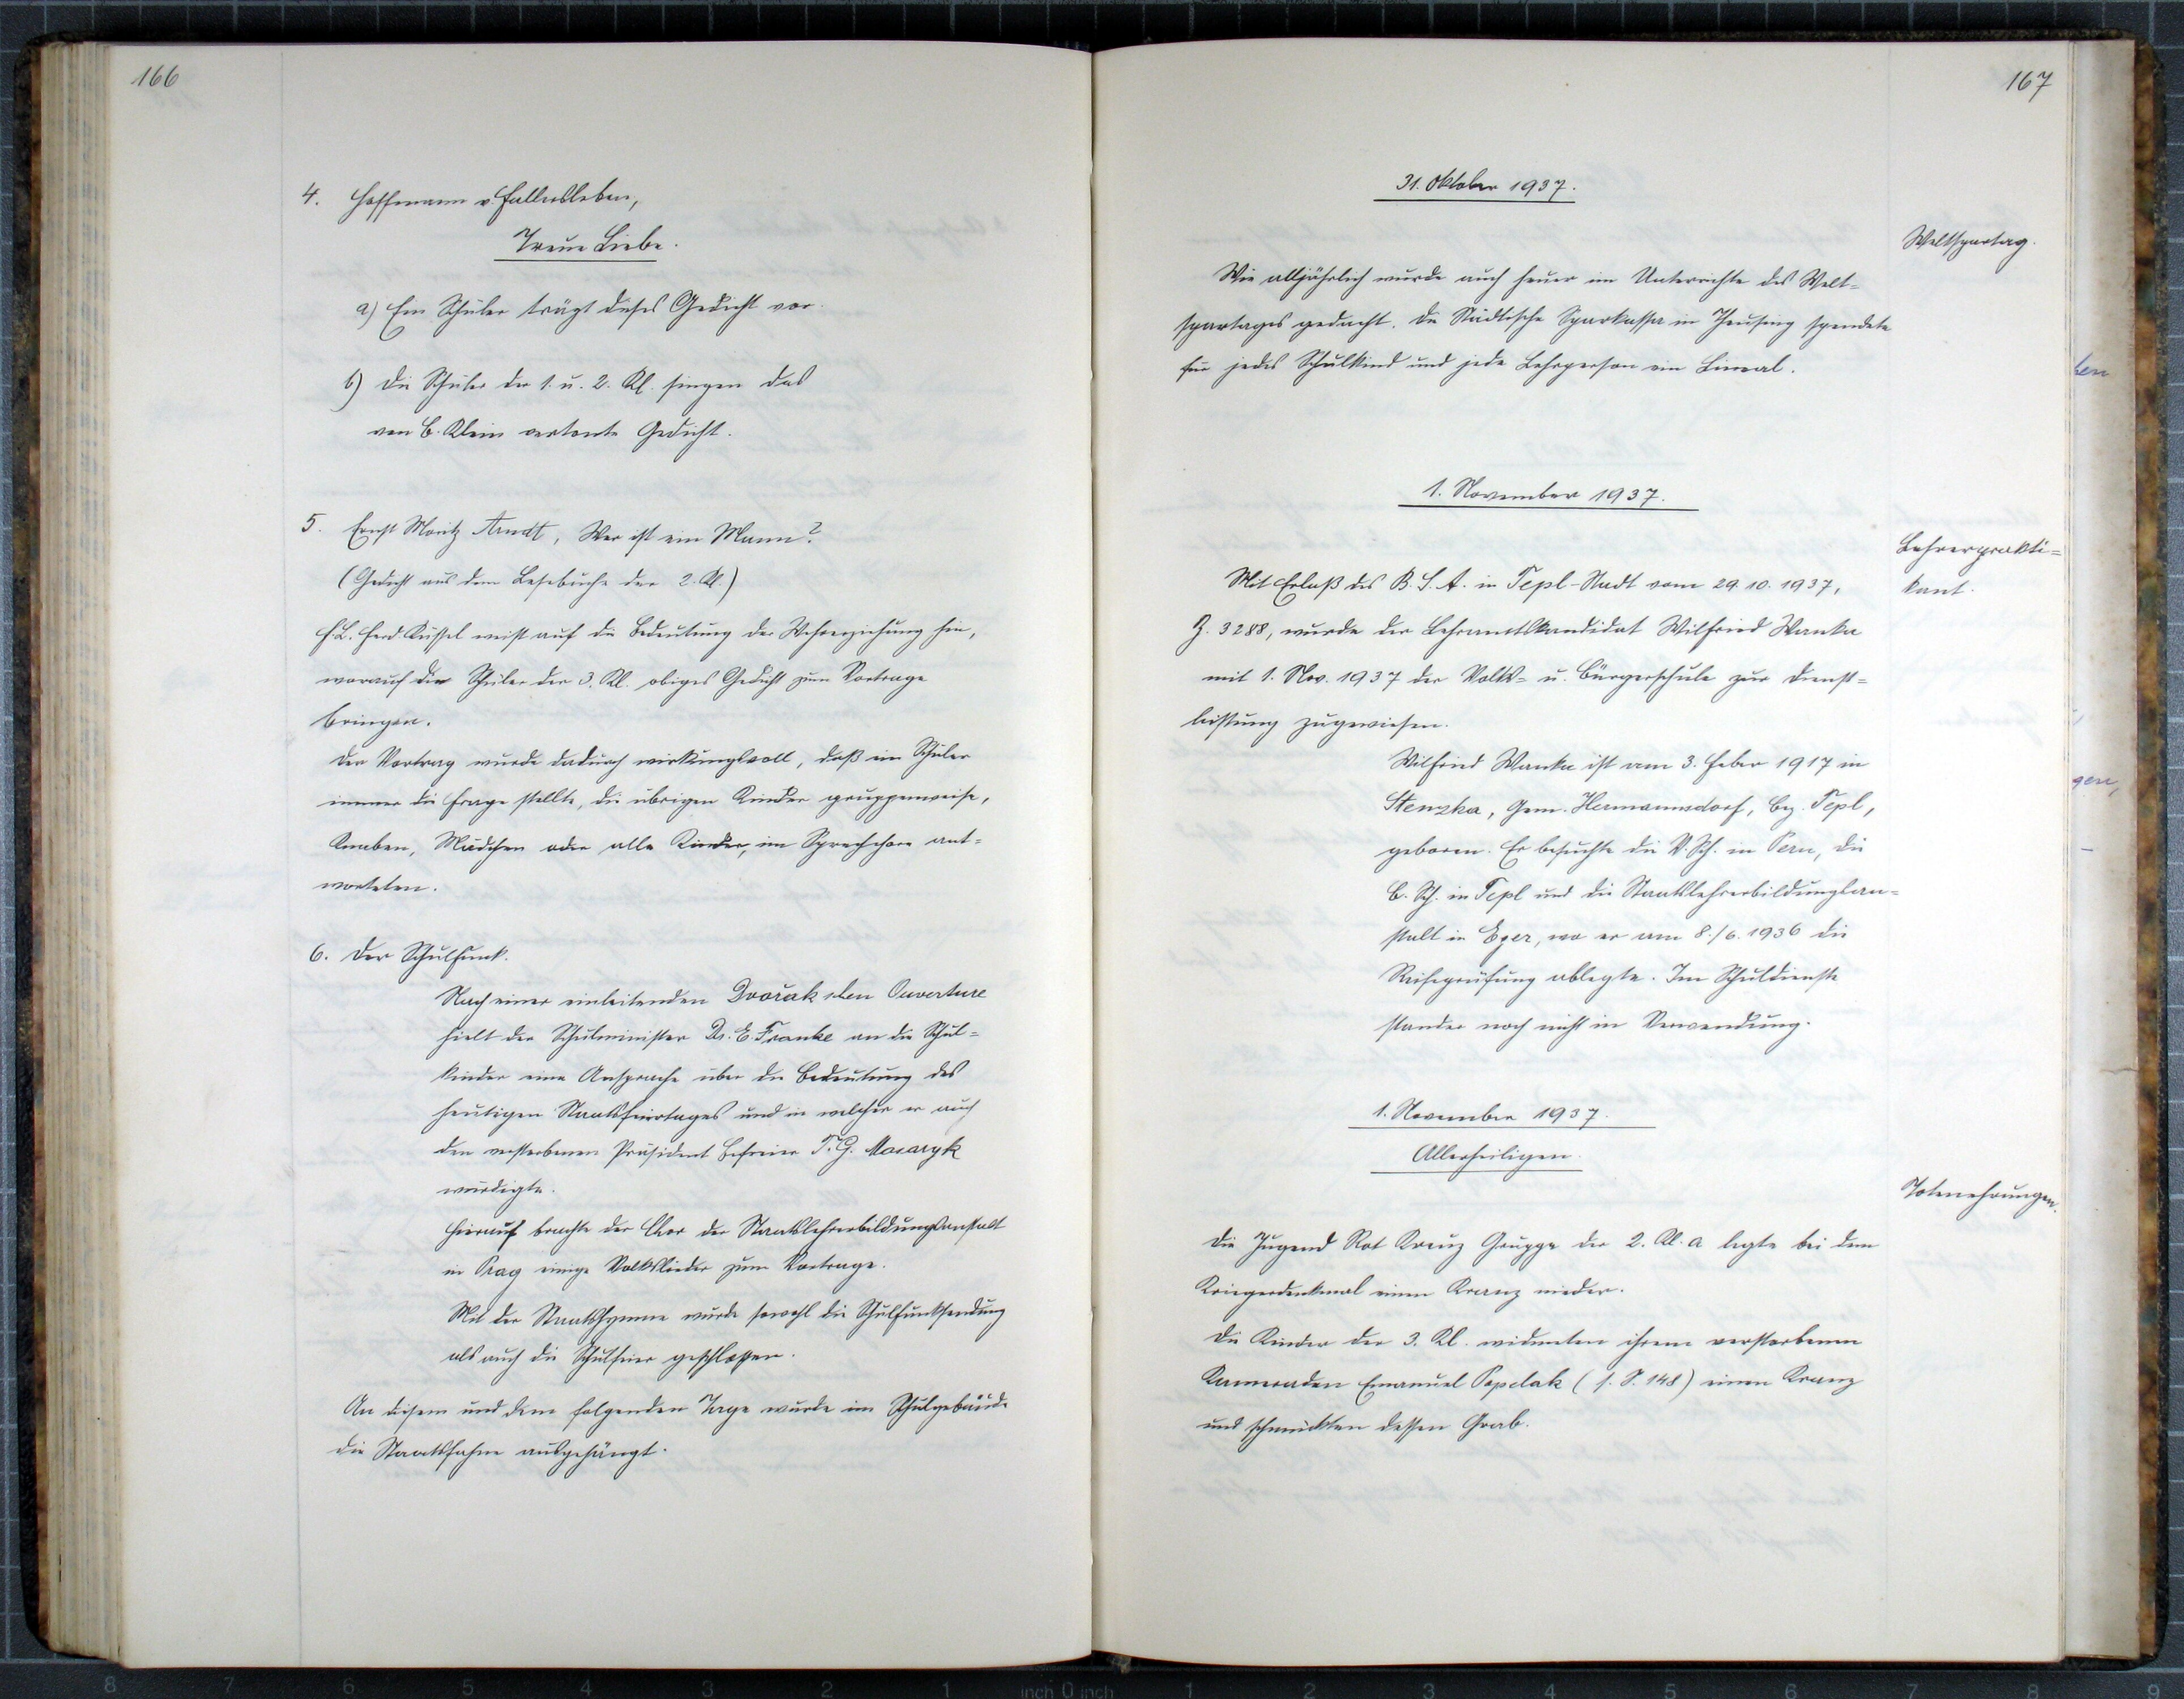 166
4. Hoffmann v. Fallersleben,
Treue Liebe.
a) Ein Schüler trägt dieses Gedicht vor.
b) Die Schüler der 1. u. 2. Kl. singen das
von B. Klein vertonte Gedicht.
5. Ernst Moritz Arndt, Wer ist ein Mann?
(Gedicht aus dem Lesebuche der 2. Kl.)
F.L. Ferd. Küssel weist auf die Bedeutung der Wehrerziehung hin,
worauf die Schüler der 3. Kl. obiges Gedicht zum Vortrage
bringen.
Der Vortrag wurde dadurch wirkungsvoll, daß ein Schüler
immer die Frage stellte, die übrigen Kinder gruppenweise,
Knaben, Mädchen oder alle Kinder, im Sprechchore ant=
worteten.
6. Der Schulfunk.
Nach einer einleitenden Dvořakschen Ouverture
hielt der Schulminister Dr. E. Franke an die Schul=
kinder eine Ansprache über die Bedeutung des
heutigen Staatsfeiertages und in welcher er auch
den verstorbenen Präsident Befreier T. G. Masaryk
würdigte.
Hierauf brachte der Chor der Staatslehrerbildungsanstalt
in Prag einige Volkslieder zum Vortrage.
Mit der Staatshymne wurde sowohl die Schulfunksendung
als auch die Schulfeier geschlossen.
An diesem und dem folgenden Tage wurde im Schulgebäude
die Staatsfahne ausgehängt.
167
31. Oktober 1937.
Weltspartag.
Wie alljährlich wurde auch heuer im Unterrichte des Welt=
spartages gedacht. Die Städtische Sparkassa in Theusing spendete
für jedes Schulkind und jede Lehrperson ein Lineal.
1. November 1937.
Lehrerprakti=
kant.
Mit Erlaß des B. S. A. in Tepl-Stadt vom 29. 10. 1937,
Z. 3288, wurde der Lehramtskandidat Wilfried Wanka
mit 1. Nov. 1937 der Volks= u. Bürgerschule zur Dienst=
leistung zugewiesen.
Wilfried Wanka ist am 3. Feber 1917 in
Stenzka, Gem. Hermannsdorf, Bez. Tepl,
geboren. Er besuchte die V. Sch. in Pern, die
B. Sch. in Tepl und die Staatslehrerbildungsan=
stalt in Eger, wo er am 8./6. 1936 die
Reifeprüfung ablegte. Im Schuldienste
stand er noch nicht in Verwendung.
1. November 1937.
Allerheiligen.
Totenehrungen.
Die Jugend Rot Kreuz Gruppe der 2. Kl. a legte bei dem
Kriegerdenkmal einen Kranz nieder.
Die Kinder der 3. Kl. widmeten ihrem verstorbenen
Kameraden Emanuel Popelak (s. S. 148) einen Kranz
und schmückten dessen Grab.
ben
gen,
8 7 6 5 4 3 2 1 inch 0 inch 1 2 3 4 5 6 7 8 9